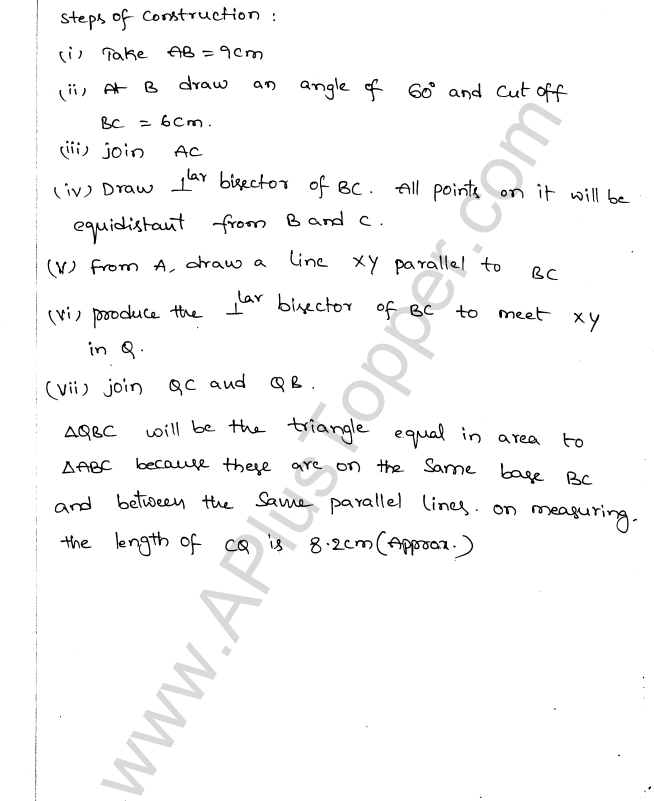 Steps of Construction :
(i) Take AB = 9cm
(ii) At B draw an angle of 60° and cut off
BC = 6cm.
(iii) join AC
(iv) Draw ⊥lar bisector of BC. All points on it will be
equidistant from B and C.
(v) From A, draw a line XY parallel to BC
(vi) produce the ⊥lar bisector of BC to meet XY
in Q.
(vii) join QC and QB.
ΔQBC will be the triangle equal in area to
ΔABC because these are on the same base BC
and between the same parallel lines. on measuring.
the length of CQ is 8.2cm (Approx.)
www.APlusTopper.com